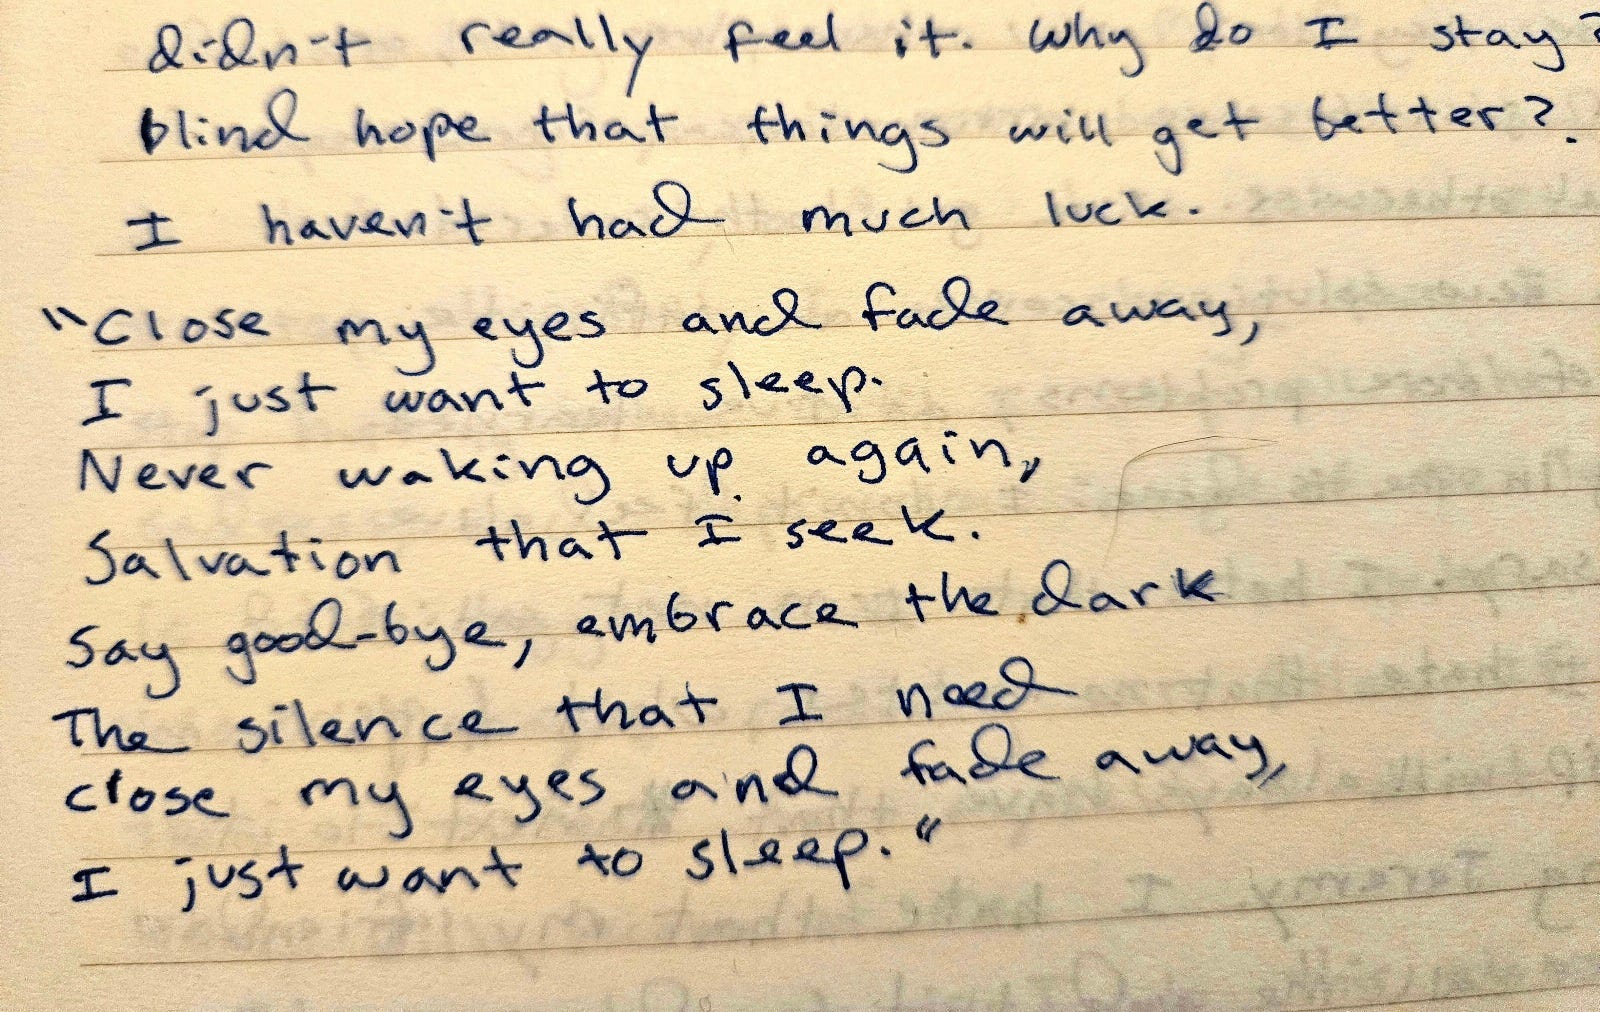 didn't really feel it. Why do I stay?
blind hope that things will get better?
I haven't had much luck.
"Close my eyes and fade away,
I just want to sleep.
Never waking up again,
Salvation that I seek.
Say good-bye, embrace the dark
The silence that I need
close my eyes and fade away,
I just want to sleep."